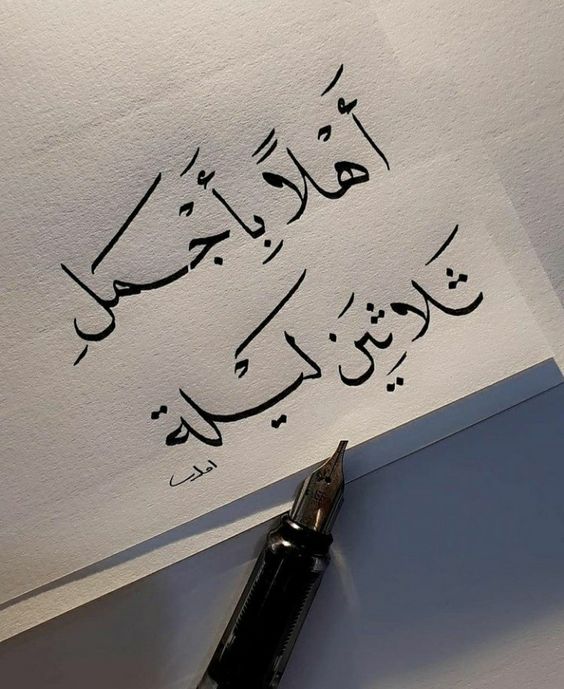 أَهْلاً بِأَجْمَلِ
ثَلاثِينَ لَيْلة